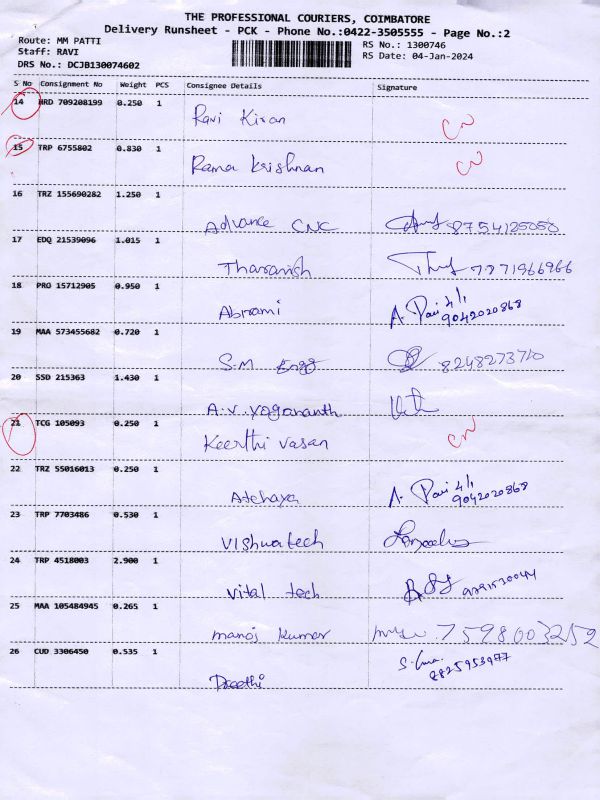 THE PROFESSIONAL COURIERS, COIMBATORE
Delivery Runsheet - PCK - Phone No.:0422-3505555 - Page No.:2
Route: MM PATTI RS No.: 1300746
Staff: RAVI RS Date: 04-Jan-2024
DRS No.: DCJB130074602
S No Consignment No Weight PCS Consignee Details Signature
14 HRD 709208199 0.250 1 Ravi Kiran CN
15 TRP 6755802 0.830 1 Rama Krishnan CN
16 TRZ 155690282 1.250 1 Advance CNC 8754125050
17 EDQ 21539096 1.015 1 Tharanish 7871966966
18 PRG 15712905 0.950 1 Abirami A. Pavi 4/1
9042020868
19 MAA 573455682 0.720 1 S.M Engg 8248273710
20 SSD 215363 1.430 1 A.V. Yogananth
21 TCG 105093 0.250 1 Keerthi vasan CN
22 TRZ 55016013 0.250 1 Atchaya A. Pavi 4/1
9042020868
23 TRP 7703486 0.530 1 Vishwatech
24 TRP 4518003 2.900 1 Vital tech
25 MAA 105484945 0.265 1 Manoj Kumar 7598003252
26 CUD 3306450 0.535 1 Preethi